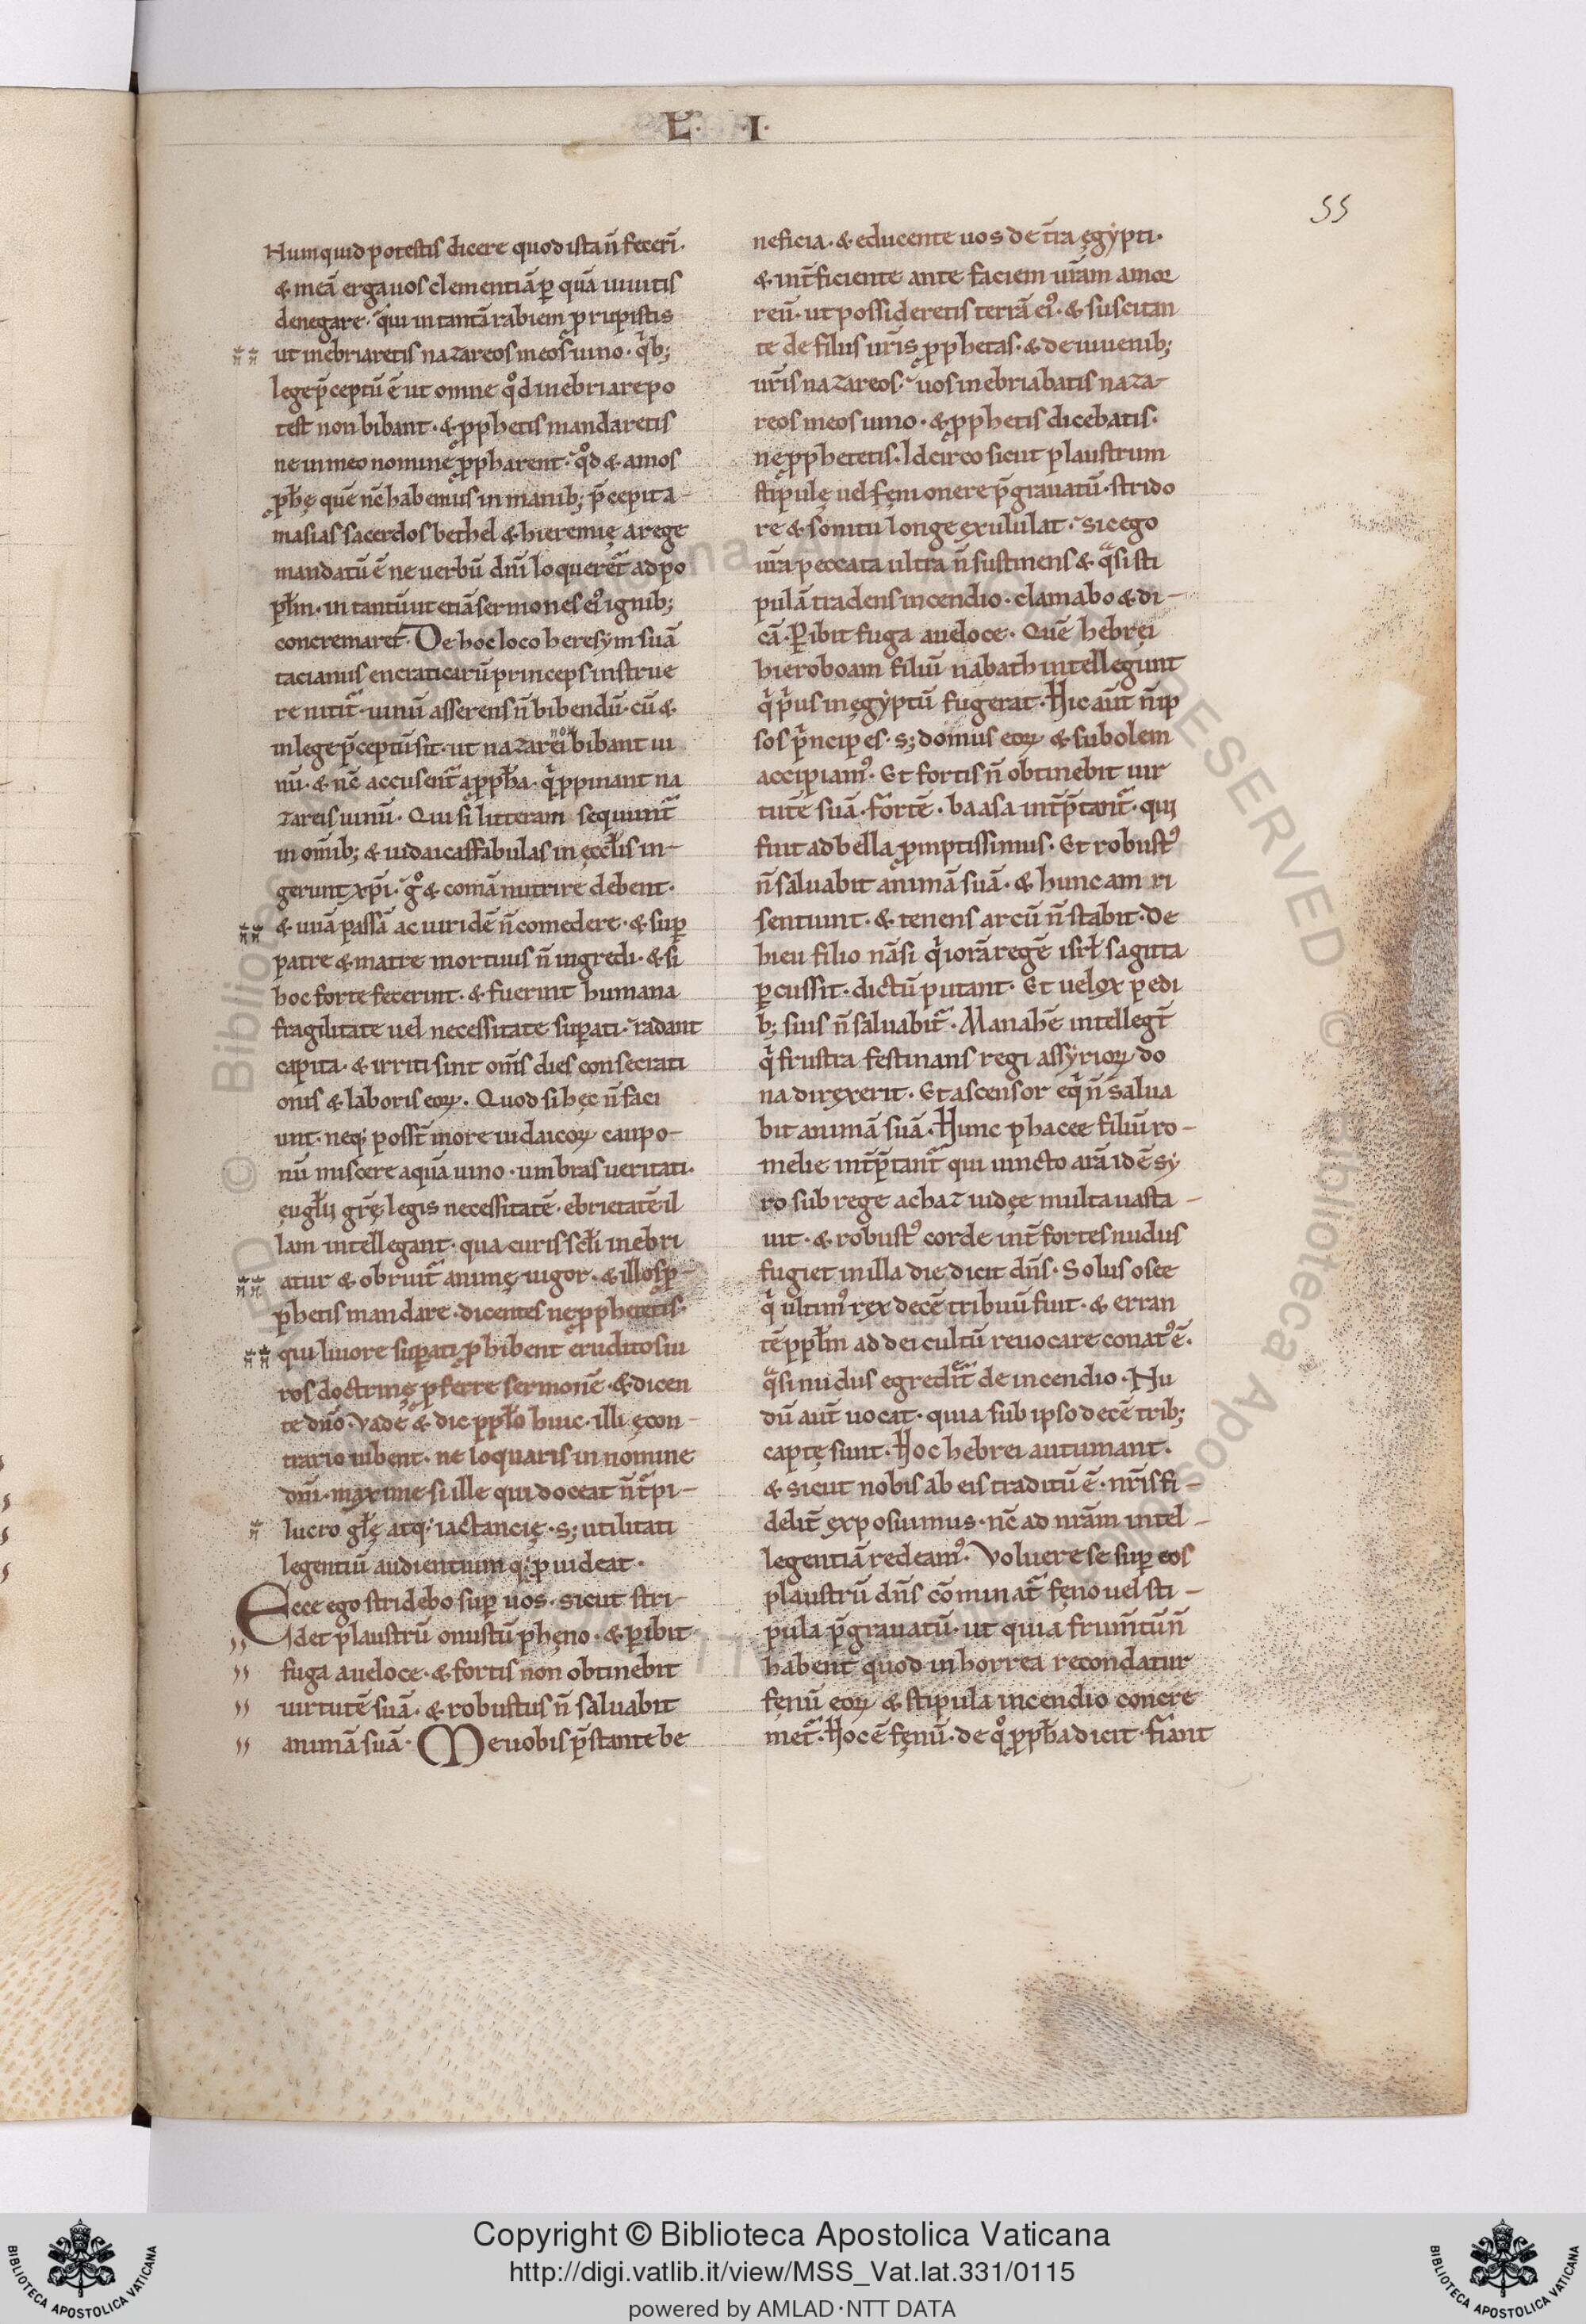 L̃. .I.
55
Numquid potestis dicere quod ista n̄ fecerī.
& meā erga uos clementiā ꝑ quā uiuitis
denegare. qui in tantā rabiem prupistis
ut inebriaretis nazareos meos uino. qͥb;
lege p̄ceptū ē ut omne qͦd inebriare po
test non bibant. & ꝓphetis mandaretis
ne in meo nomine ꝓpharent. qͦd & amos
ꝓph̄ę quē nc̄ habemus in manib; p̄cepit a-
masias sacerdos bethel & hieremię a rege
mandatū ē ne uerbū dnī loqueret᷑ ad po
pl̄m. in tantū ut etiā sermones eiꝰ ignib;
concremaret. De hoc loco heresym suā
tacianus encraticarū princeps instrue
re nitit᷑. uinū asserens n̄ bibendū. cū &
in lege p̄ceptū sit. ut nazarei non bibant ui
nū. & nc̄ accusent᷑ a ꝓph̄a. qͥ ꝓpinant na
zareis uinū. Qui si litteram sequunt᷑
in om̄ib; & iudaicas fabulas in ęccl̄is in-
gerunt xp̄i. gͦ & comā nutrire debent.
& uuā passā ac uiridē n̄ comedere. & suꝑ
patre & matre mortuis n̄ ingredi. & si
hoc forte fecerint. & fuerint humana
fragilitate uel necessitate suꝑati. radant
capita. & irriti sint om̄s dies consecrati
onis & laboris eoꝝ. Quod si hęc n̄ faci
unt. neq; posst̄ more iudaicoꝝ caupo-
nū miscere aquā uino. umbras ueritati.
euglīi grę̄ legis necessitatē. ebrietatē il
lam intellegant. qua curis scl̄i inebri
atur & obruit᷑ animę uigor. & illos ꝓ-
phetis mandare. dicentes ne ꝓphetetis.
qui liuore suꝑati ꝓhibent eruditos ui
ros doctrinę ꝓferre sermonē. & dicen
te dn̄o. Vade & dic ppl̄o huic. illi ęcon-
trario iubent. ne loquaris in nomine
dn̄i. maxime si ille qui doceat n̄ t᷑pi-
lucro gl̄ę atq; iactancię. s; utilitati
legentiū audientium q; ꝓuideat.
Ecce ego stridebo suꝑ uos. sicut stri-
det plaustrū onustū phęno. & ꝑibit
fuga a ueloce. & fortis non obtinebit
uirtutē suā. & robustus n̄ saluabit
animā suā. Me uobis p̄stante be
neficia. & educente uos de t̄ra ęgypti.
& int̄ficiente ante faciem urām amor
reū. ut possideretis terrā eiꝰ. & suscitan
te de filiis ur̄is ꝓphetas. & de iuuenib;
ur̄is nazareos. uos inebriabatis naza-
reos meos uino. & ꝓphetis dicebatis.
ne ꝓphetetis. Idcirco sicut plaustrum
stipulę uel fęni onere p̄grauatū. strido
re & sonitu longe exululat. sic ego
ur̄a peccata ultra n̄ sustinens & qͣsi sti
pulā tradens incendio. clamabo & di-
cā. Ꝑibit fuga a ueloce. Quē hebręi
hieroboam filiū nabath intellegunt
qͥ pͥus in ęgyptū fugerat. Hic aūt n̄ ip
sos pͥncipes. s; domus eoꝝ & subolem
accipiamꝰ. Et fortis n̄ obtinebit uir
tutē suā. fortē. baasa int̄p̄tant᷑. qui
fuit ad bella ꝓmptissimus. Et robustꝰ
n̄ saluabit animā suā. & hunc amri
sentiunt. & tenens arcū n̄ stabit. De
hieu filio nāsi qͥ iorā regē isrl̄ sagitta
ꝑcussit. dictū putant. Et uelox pedi
b; suis n̄ saluabit᷑. Manahē intellegt̄
qͥ frustra festinans regi assyrioꝝ do
na direxerit. Et ascensor eqͥ n̄ salua
bit animā suā. Hunc phacee filiū ro-
melie int̄p̄tant᷑ qui iuncto arā id ē sy
ro sub rege achaz iudęe multa uasta-
uit. & robustꝰ corde int̄ fortes nudus
fugiet in illa die dicit dn̄s. Solus osee
qͥ ultimꝰ rex decē tribuū fuit. & erran
tē ppl̄m ad dei cultū reuocare conatꝰ ē.
qͣsi nudus egredit᷑ de incendio. Nu
dū aut̄ uocat. quia sub ipso decē trib;
captę sunt. Hoc hebrei autumant.
& sicut nobis ab eis traditū ē. nr̄is fi-
delit᷑ exposuimus. nc̄ ad nrām intel-
legentiā redeamꝰ. Voluere se suꝑ eos
plaustrū dn̄s cōminat᷑ fęno uel sti-
pula p̄grauatū. ut quia frum̄tū n̄
habent quod in horrea recondatur
fęnū eoꝝ & stipula incendio concre
met᷑. Hoc ē fęnū. de qͦ ꝓpha dicit. fiant
Copyright © Biblioteca Apostolica Vaticana
http://digi.vatlib.it/view/MSS_Vat.lat.331/0115
powered by AMLAD·NTT DATA
BIBLIOTECA APOSTOLICA VATICANA
BIBLIOTECA APOSTOLICA VATICANA